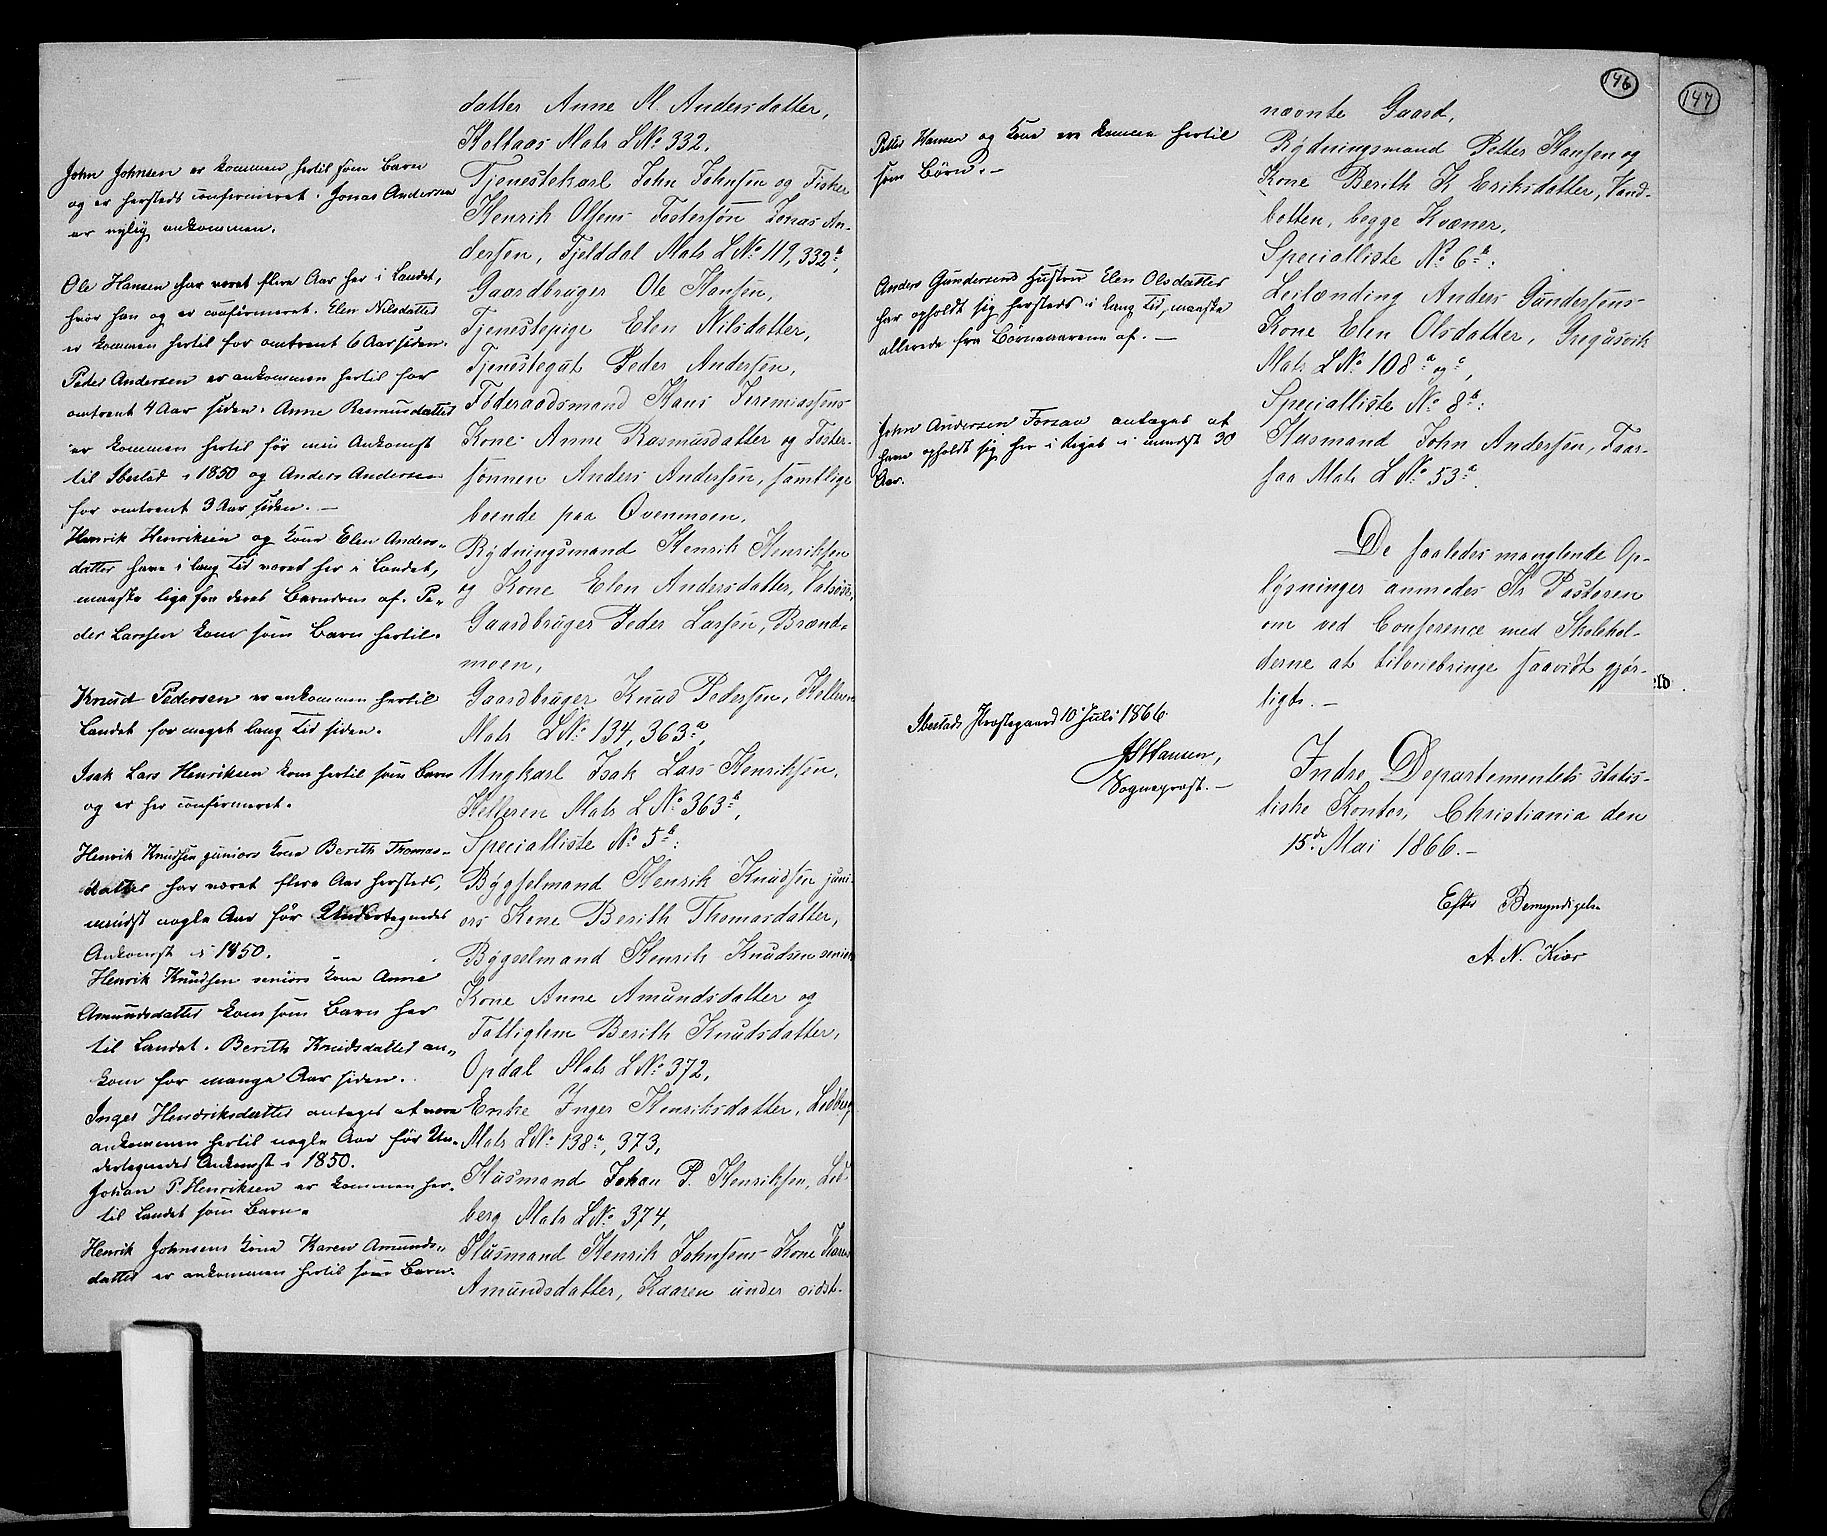 John Johnsen er kommen hertil som Barn
og er hersteds confirmeret. Jonas Andersen
er nylig ankommen.
Ole Hansen har været flere Aar her i Landet,
hvor han og er confirmeret. Elen Nilsdatter
er kommen hertil for omtrent 6 Aar siden.
Peder Andersen er ankommen hertil for
omtrent 4 Aar siden. Anne Rasmusdatter
er kommen hertil før min Ankomst
til Ibestad i 1850 og Anders Andersen
for omtrent 3 Aar siden. —
Henrik Henriksen og Kone Elen Anders-
datter have i lang Tid været her i Landet,
maaske lige fra deres Barndom af. Pe-
der Larsen kom som Barn hertil.
Knud Pedersen er ankommen hertil
Landet for meget lang Tid siden.
Isak Lars Henriksen kom hertil som Barn
og er her confirmeret.
Henrik Knudsen juniors Kone Berith Thomas-
datter har været flere Aar hersteds,
mindst nogle Aar før Undertegnedes
Ankomst i 1850.
Henrik Knudsen seniors Kone Anne
Amundsdatter kom som Barn her
til Landet. Berith Knudsdatter an-
kom for mange Aar siden.
Inger Hendriksdatter antages at være
ankommen hertil nogle Aar før Un-
dertegnedes Ankomst i 1850.
Johan P. Henriksen er kommen her-
til Landet som Barn.
Henrik Johnsens Kone Karen Amunds-
datter er ankommen hertil som Barn.
datter Anne M. Andersdatter,
Holtaas Mats LNo 332.
Tjenestekarl John Johnsen og Fisker
Henrik Olsens Fostersøn Jonas An-
dersen, Fjelddal Mats LNo 119, 332b,
Gaardbruger Ole Hansen,
Tjenestepige Elen Nilsdatter,
Tjenestegut Peder Andersen,
Føderaadsmand Hans Jeremiassens
Kone Anne Rasmusdatter og Foster-
sønnen Anders Andersen, samtlige
boende paa Ovenmoen.
Rydningsmand Henrik Henriksen
og Kone Elen Andersdatter,
Gaardbruger Peder Larsen, Brand-
moen,
Gaardbruger Knud Pedersen, Helleren
Mats LNo 134, 363a,
Ungkarl Isak Lars Henriksen,
Helleren Mats LNo 363b,
Specialliste No 5b:
Bygselmand Henrik Knudsen juni-
ors Kone Berith Thomasdatter,
Bygselmand Henrik Knudsen seniors
Kone Anne Amundsdatter og
Fattiglem Berith Knudsdatter,
Opdal Mats LNo 372,
Enke Inger Henriksdatter, Ledberg
Mats LNo 138a, 373,
Husmand Johan P. Henriksen, Led-
berg Mats LNo 374,
Husmand Henrik Johnsens Kone Karen
Amundsdatter, Kaaren under sidst-
146
147
Petter Hansen og Kone ere kommen hertil
som Børn. —
Anders Gundersens Hustru Elen Olsdatter
har opholdt sig hersteds i lang Tid, maaske
allerede fra Børneaarene af. —
John Andersen Forsaa antages at
have opholdt sig her i Riget i mindst 30
Aar.
Ibestads Præstegaard 10 Juli 1866.
Hansen,
Sogneprest. —
nævnte Gaard,
Rydningsmand Petter Hansen og
Kone Berith K. Eriksdatter, Vand-
botten, begge Kvæner.
Specialliste No 6b:
Leilænding Anders Gundersens
Kone Elen Olsdatter, Grøgusvik
Mats LNo 108a og c,
Specialliste No 8b:
Husmand John Andersen, Faar-
saa Mats LNo 53a.
De saaledes manglende Op-
lysninger anmodes Hr Pastoren
om ved Conference med Skolehol-
derne at tilveiebringe saavidt gjør-
ligt. —
eld
Indre Departementets statis-
tiske Kontor, Christiania den
15de Mai 1866. —
Efter Bemyndigelse
A. N. Kiær